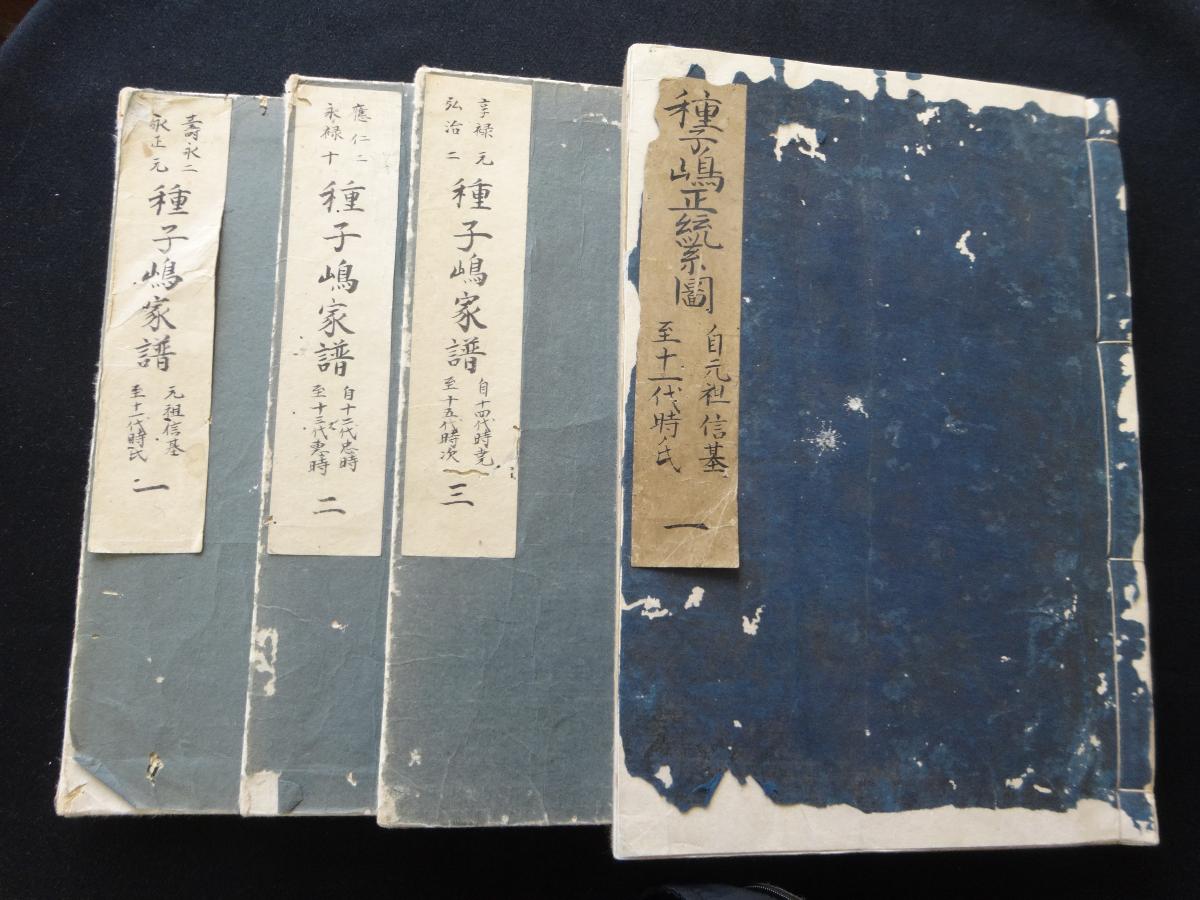 種子嶋正統系圖
自元祖信基
至十一代時氏
一
享禄元
弘治二
種子嶋家譜
自十四代時尭
至十五代時次
三
應仁二
永禄十
種子嶋家譜
自十二代忠時
至十三代恵時
二
壽永二
永正元
種子嶋家譜
元祖信基
至十一代時氏
一